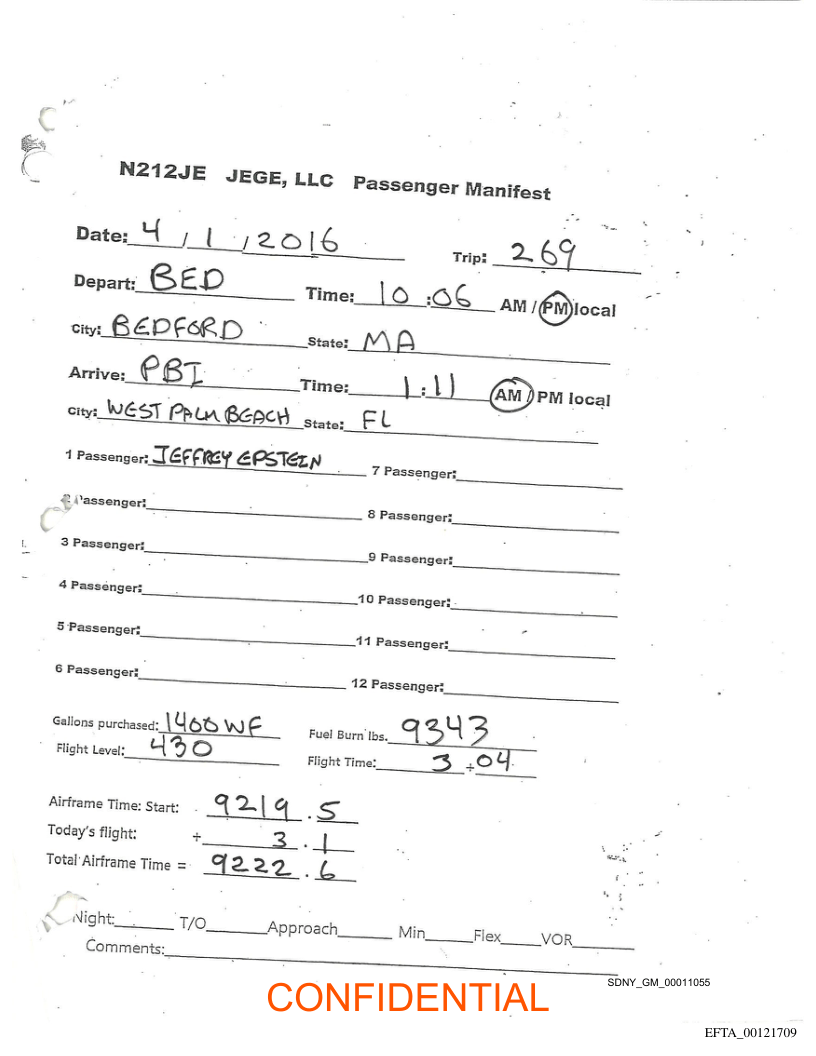 N212JE JEGE, LLC Passenger Manifest
Date: 4 / 1 / 2016 Trip: 269
Depart: BED Time: 10 : 06 AM / PM local
City: BEDFORD State: MA
Arrive: PBI Time: 1 : 11 AM / PM local
City: WEST PALM BEACH State: FL
1 Passenger: JEFFREY EPSTEIN 7 Passenger:
Passenger: 8 Passenger:
3 Passenger: 9 Passenger:
4 Passenger: 10 Passenger:
5 Passenger: 11 Passenger:
6 Passenger: 12 Passenger:
Gallons purchased: 1400 WF Fuel Burn lbs. 9343
Flight Level: 430 Flight Time: 3 + 04
Airframe Time: Start: 9219 . 5
Today's flight: + 3 . 1
Total Airframe Time = 9222 . 6
Night: T/O Approach Min Flex VOR
Comments:
SDNY_GM_00011055
CONFIDENTIAL
EFTA_00121709